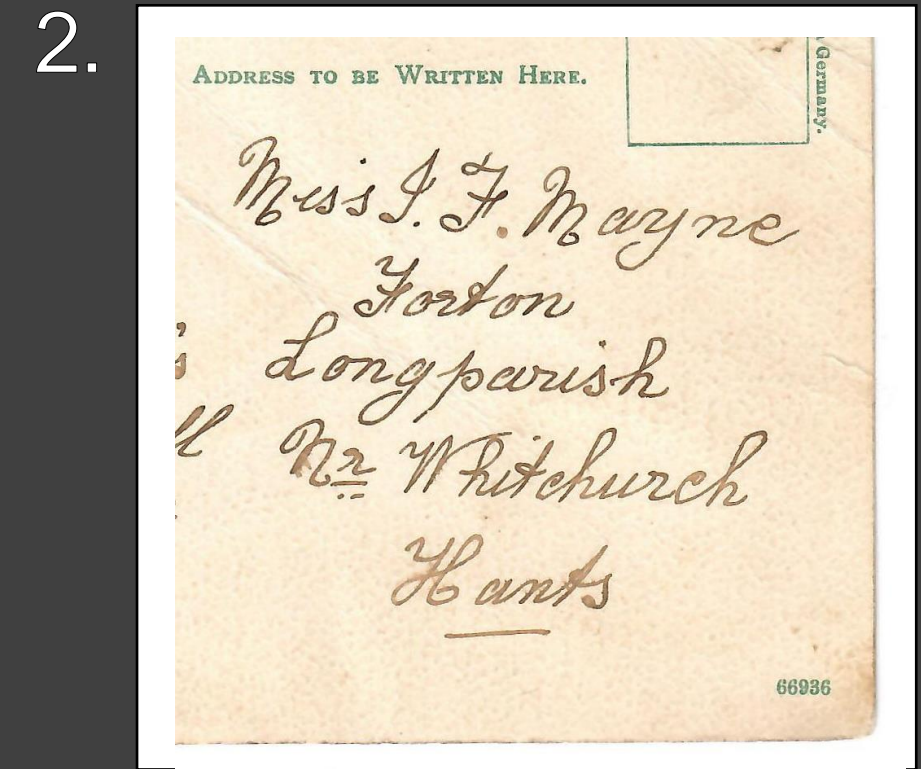 2.
ADDRESS TO BE WRITTEN HERE.
Germany.
Miss I. F. Mayne
Forton
's
Longparish
ll
Nr Whitchurch
Hants
66936